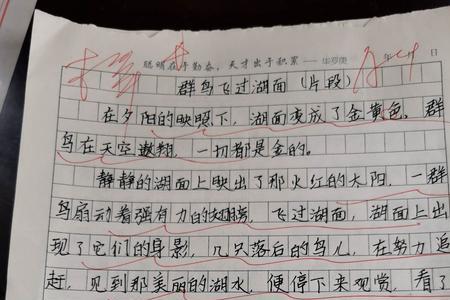 聪明在于勤奋，天才出于积累——华罗庚 年 月 日
群鸟飞过湖面（片段）
在夕阳的映照下，湖面变成了金黄色。群
鸟在天空遨翔，一切都是金的。
静静的湖面上映出了那火红的太阳，一群
鸟扇动着强有力的翅膀，飞过湖面，湖面上出
现了它们的身影，几只落后的鸟儿，在努力追
赶，见到那美丽的湖水，便停下来观赏，看了